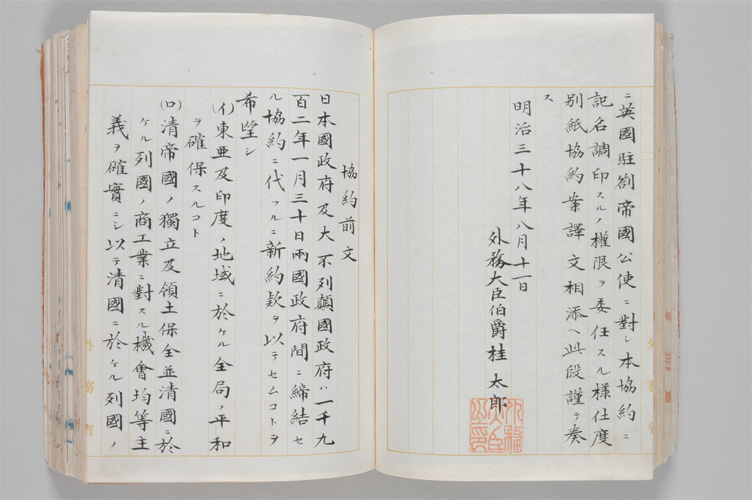 ニ英國駐劄帝國公使ニ對シ本協約ニ
記名調印スルノ權限ヲ委任スル樣仕度
別紙協約案譯文相添ヘ此段謹テ奏
ス
明治三十八年八月十一日
外務大臣伯爵桂太郎
協約前文
日本國政府及大不列顛國政府ハ一千九
百二年一月三十日兩國政府間ニ締結セ
ル協約ニ代フルニ新約款ヲ以テセムコトヲ
希望シ
(イ)東亜及印度ノ地域ニ於ケル全局ノ平和
ヲ確保スルコト
(ロ)清帝國ノ獨立及領土保全並清國ニ於
ケル列國ノ商工業ニ對スル機會均等主
義ヲ確實ニシ以テ清國ニ於ケル列國ノ
外務省